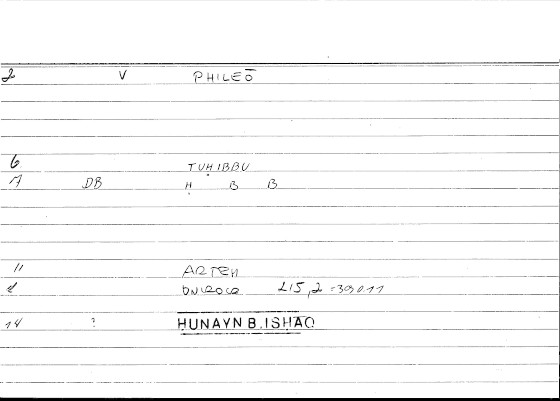 2 V PHILEŌ
6 TUḤIBBU
7 DB Ḥ B B
11 ARTEM
ONIROCR 215,2 -39011
14 ? ḤUNAYN B.ISḤAQ